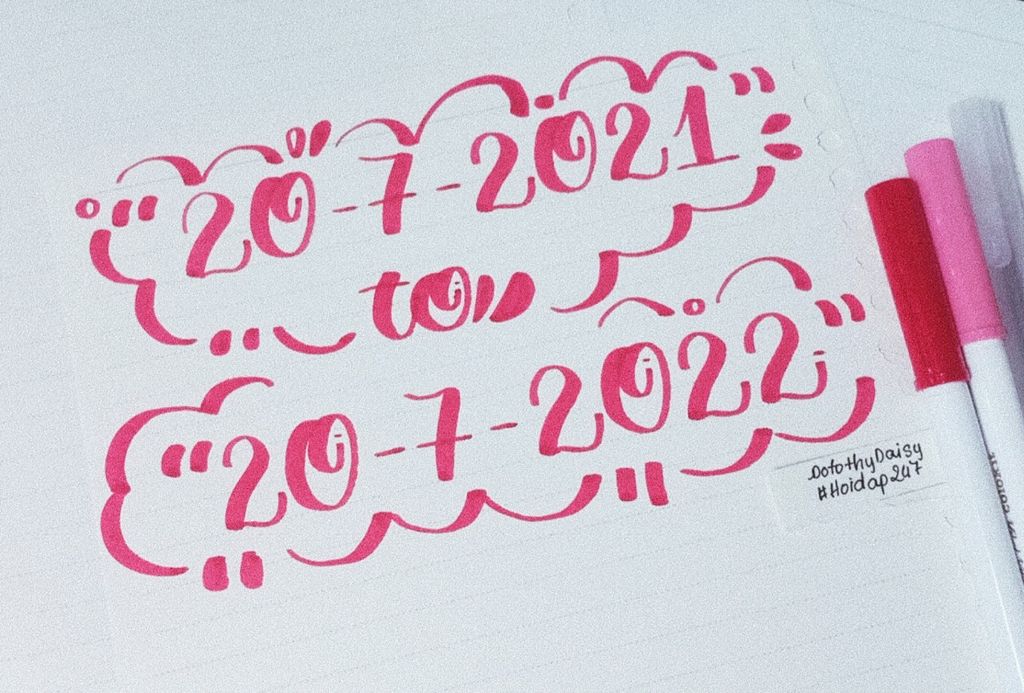 "20-7-2021"
to
"20-7-2022"
DorothyDaisy
#Hoidap247